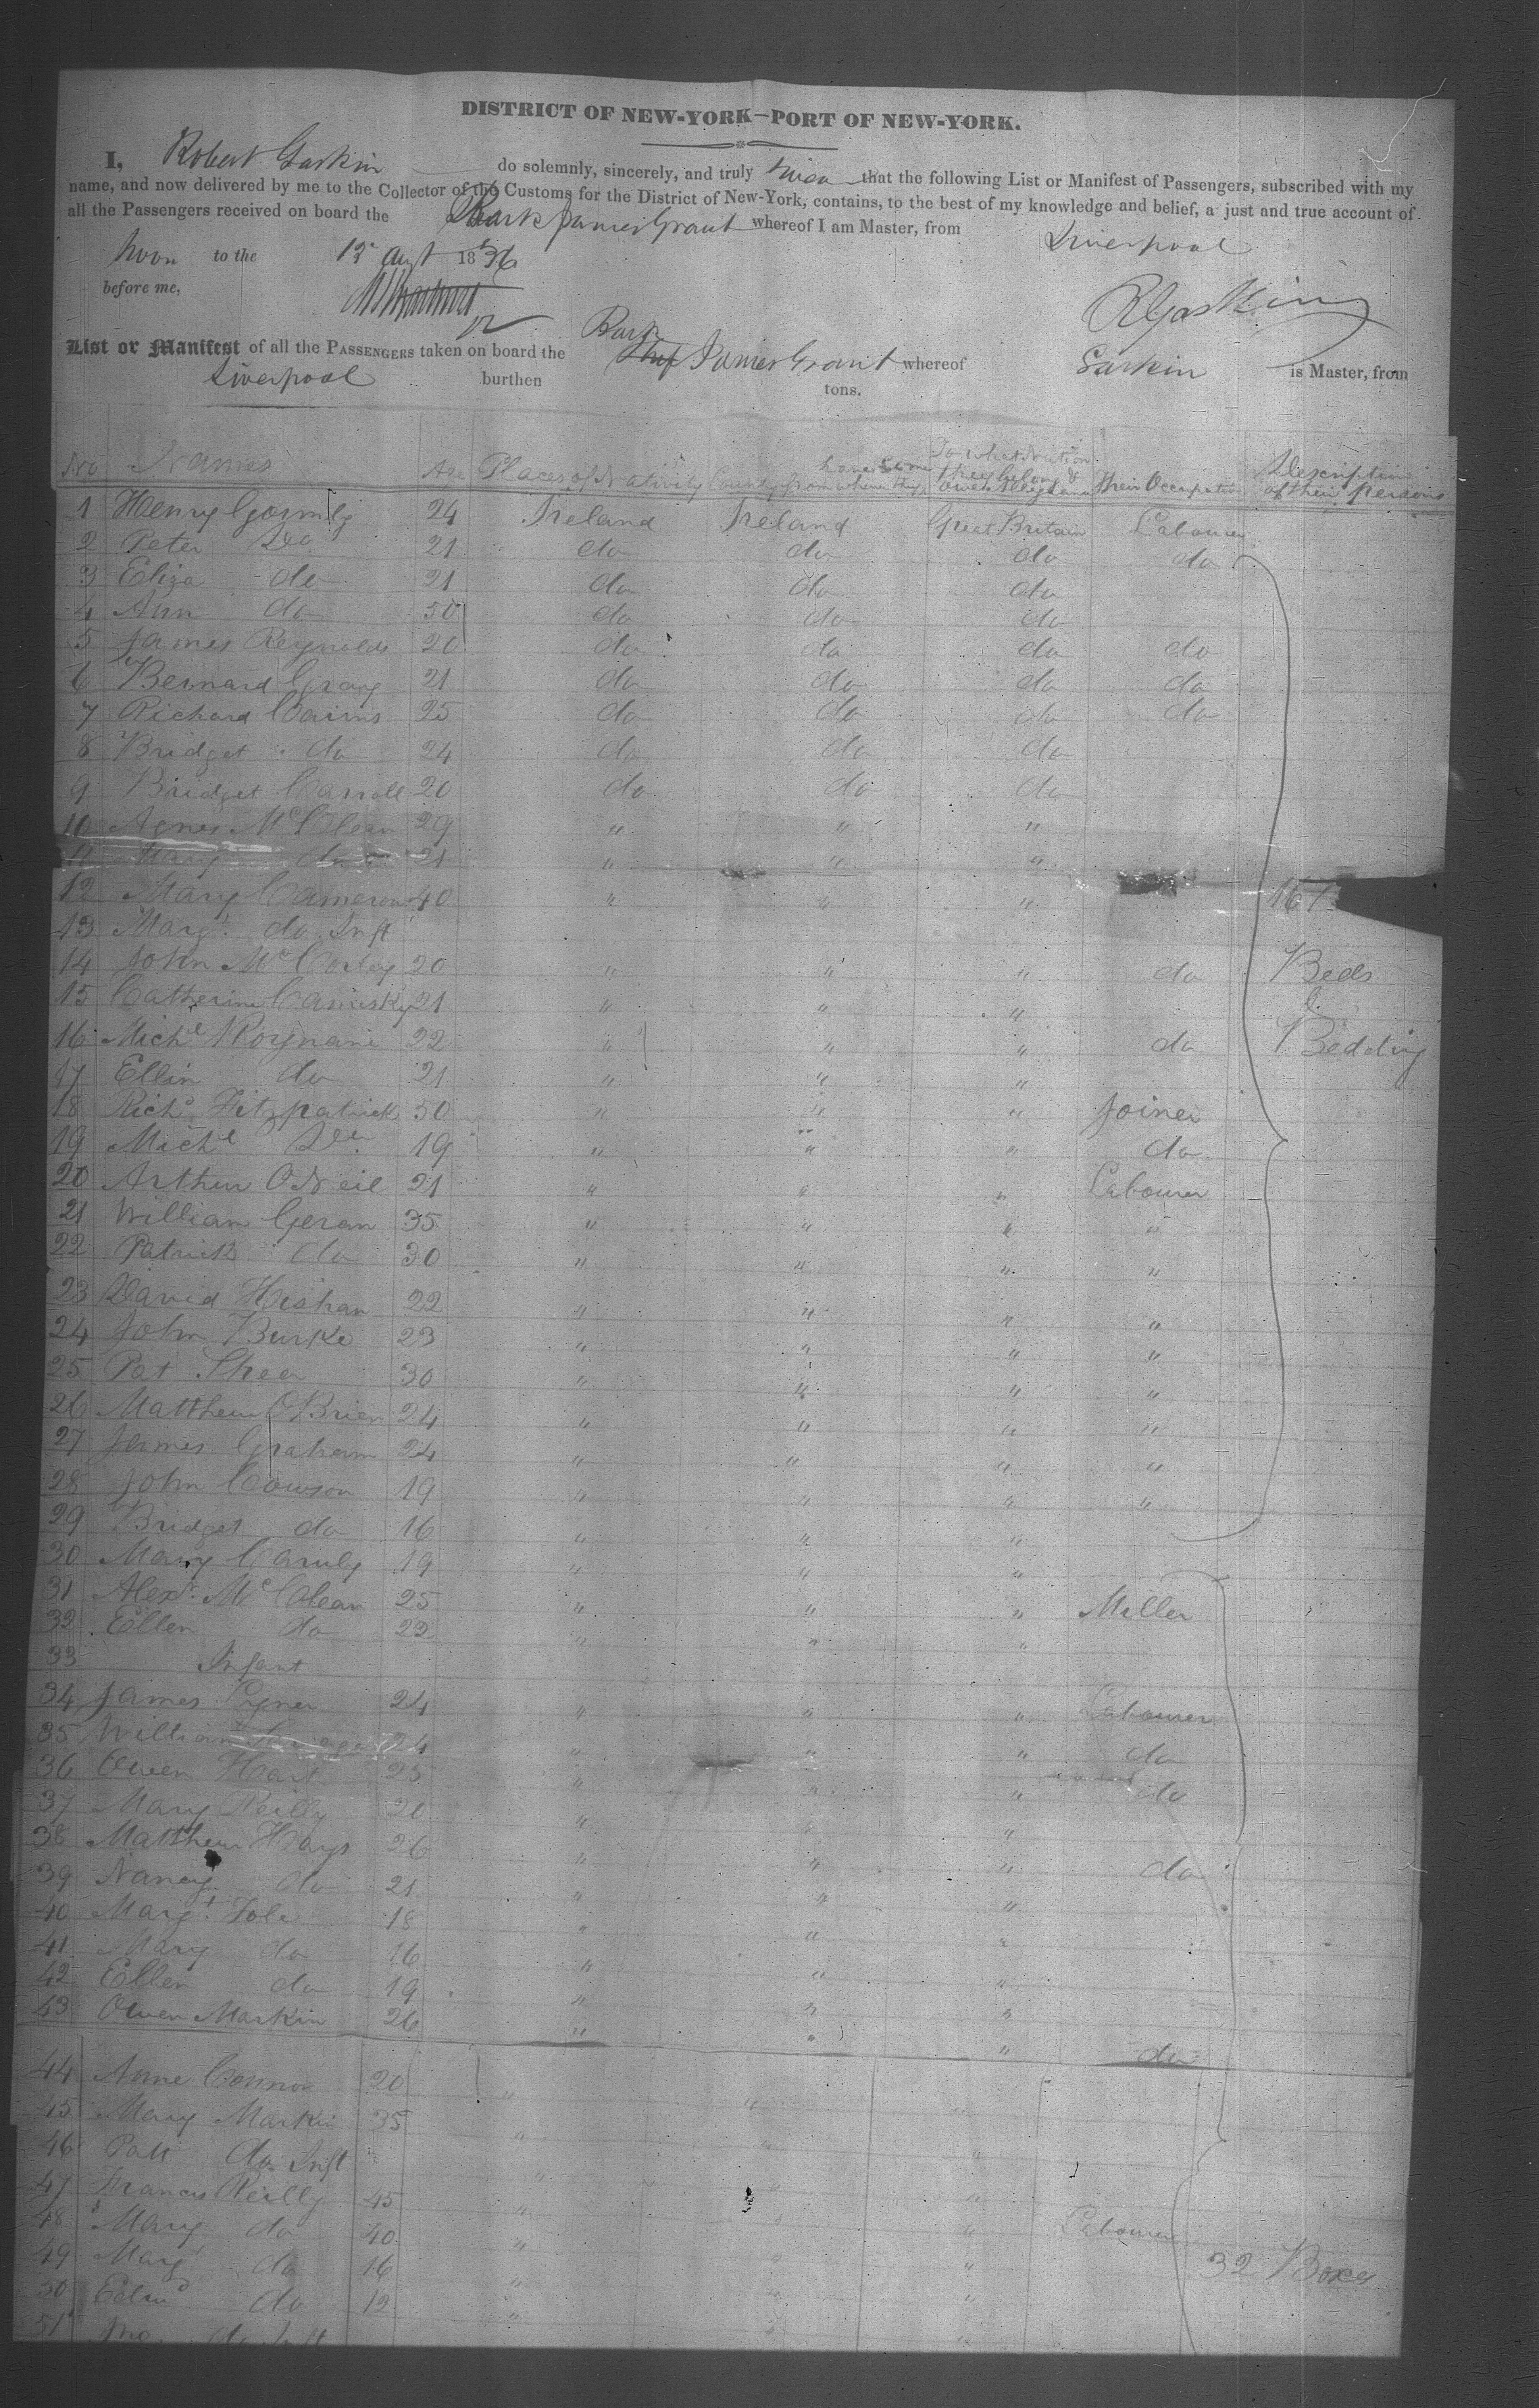 DISTRICT OF NEW-YORK—PORT OF NEW-YORK.
I, Robert Gaskin do solemnly, sincerely, and truly that the following List or Manifest of Passengers, subscribed with my
name, and now delivered by me to the Collector of the Customs for the District of New-York, contains, to the best of my knowledge and belief, a just and true account of
all the Passengers received on board the Bark James Grant whereof I am Master, from Liverpool
to the 15 Augt 1836
before me, RGaskin
List or Manifest of all the PASSENGERS taken on board the Bark Ship James Grant whereof Gaskin is Master, from
Liverpool burthen tons.
No Names Age Places of Nativity Country from whence they have come To what Nation they belong & owe Allegiance Their Occupation Description of their Persons
1 Henry Gormly 24 Ireland Ireland Great Britain Labourer
2 Peter Do 21 do do do do
3 Eliza do 21 do do do
4 Ann do 50 do do do
5 James Reynolds 20 do do do do
6 Bernard Gray 21 do do do do
7 Richard Cairns 25 do do do do
8 Bridget do 24 do do do
9 Bridget Carroll 20 do do do
10 Agnes McClean 29 " " "
11 Mary do 21 " " "
12 Mary Cameron 40 " " " 167
13 Margt. do Inft
14 John McCorley 20 " " " do Beds
15 Catherine 21 " " " &
16 Michl 22 " " " do Bedding
17 Ellin do 21 " " "
18 Richd Fitzpatrick 50 " " " Joiner
19 Michl Do 19 " " " do
20 Arthur O'Neil 21 " " " Labourer
21 William Geran 35 " " " "
22 Patrick do 30 " " " "
23 David Hishan 22 " " " "
24 John Burke 23 " " " "
25 Pat Shea 30 " " " "
26 Matthew O'Brien 24 " " " "
27 James Graham 24 " " " "
28 John Cowson 19 " " " "
29 Bridget do 16 " " "
30 Mary 19 " " "
31 Alexr. McClean 25 " " " Miller
32 Ellen do 22 " " "
33 Infant
34 James 24 " " " Labourer
35 William Savage 24 " " " do
36 Owen Hart 25 " " " do
37 Mary Reilly 20 " " "
38 Matthew Hays 26 " " " do
39 Nancy do 21 " " "
40 Margt. Tole 18 " " "
41 Mary do 16 " " "
42 Ellen do 19 " " "
43 Owen Markin 26 " " " do
44 Anne Connor 20 " " "
45 Mary Markin 35 " " "
46 Patt do Inft " " "
47 Francis Reilly 45 " " " Labourer
48 Mary do 40 " " "
49 Margt do 16 " " " 32 Boxes
50 Edwd do 12 " " "
51 Jno. do Inft " "